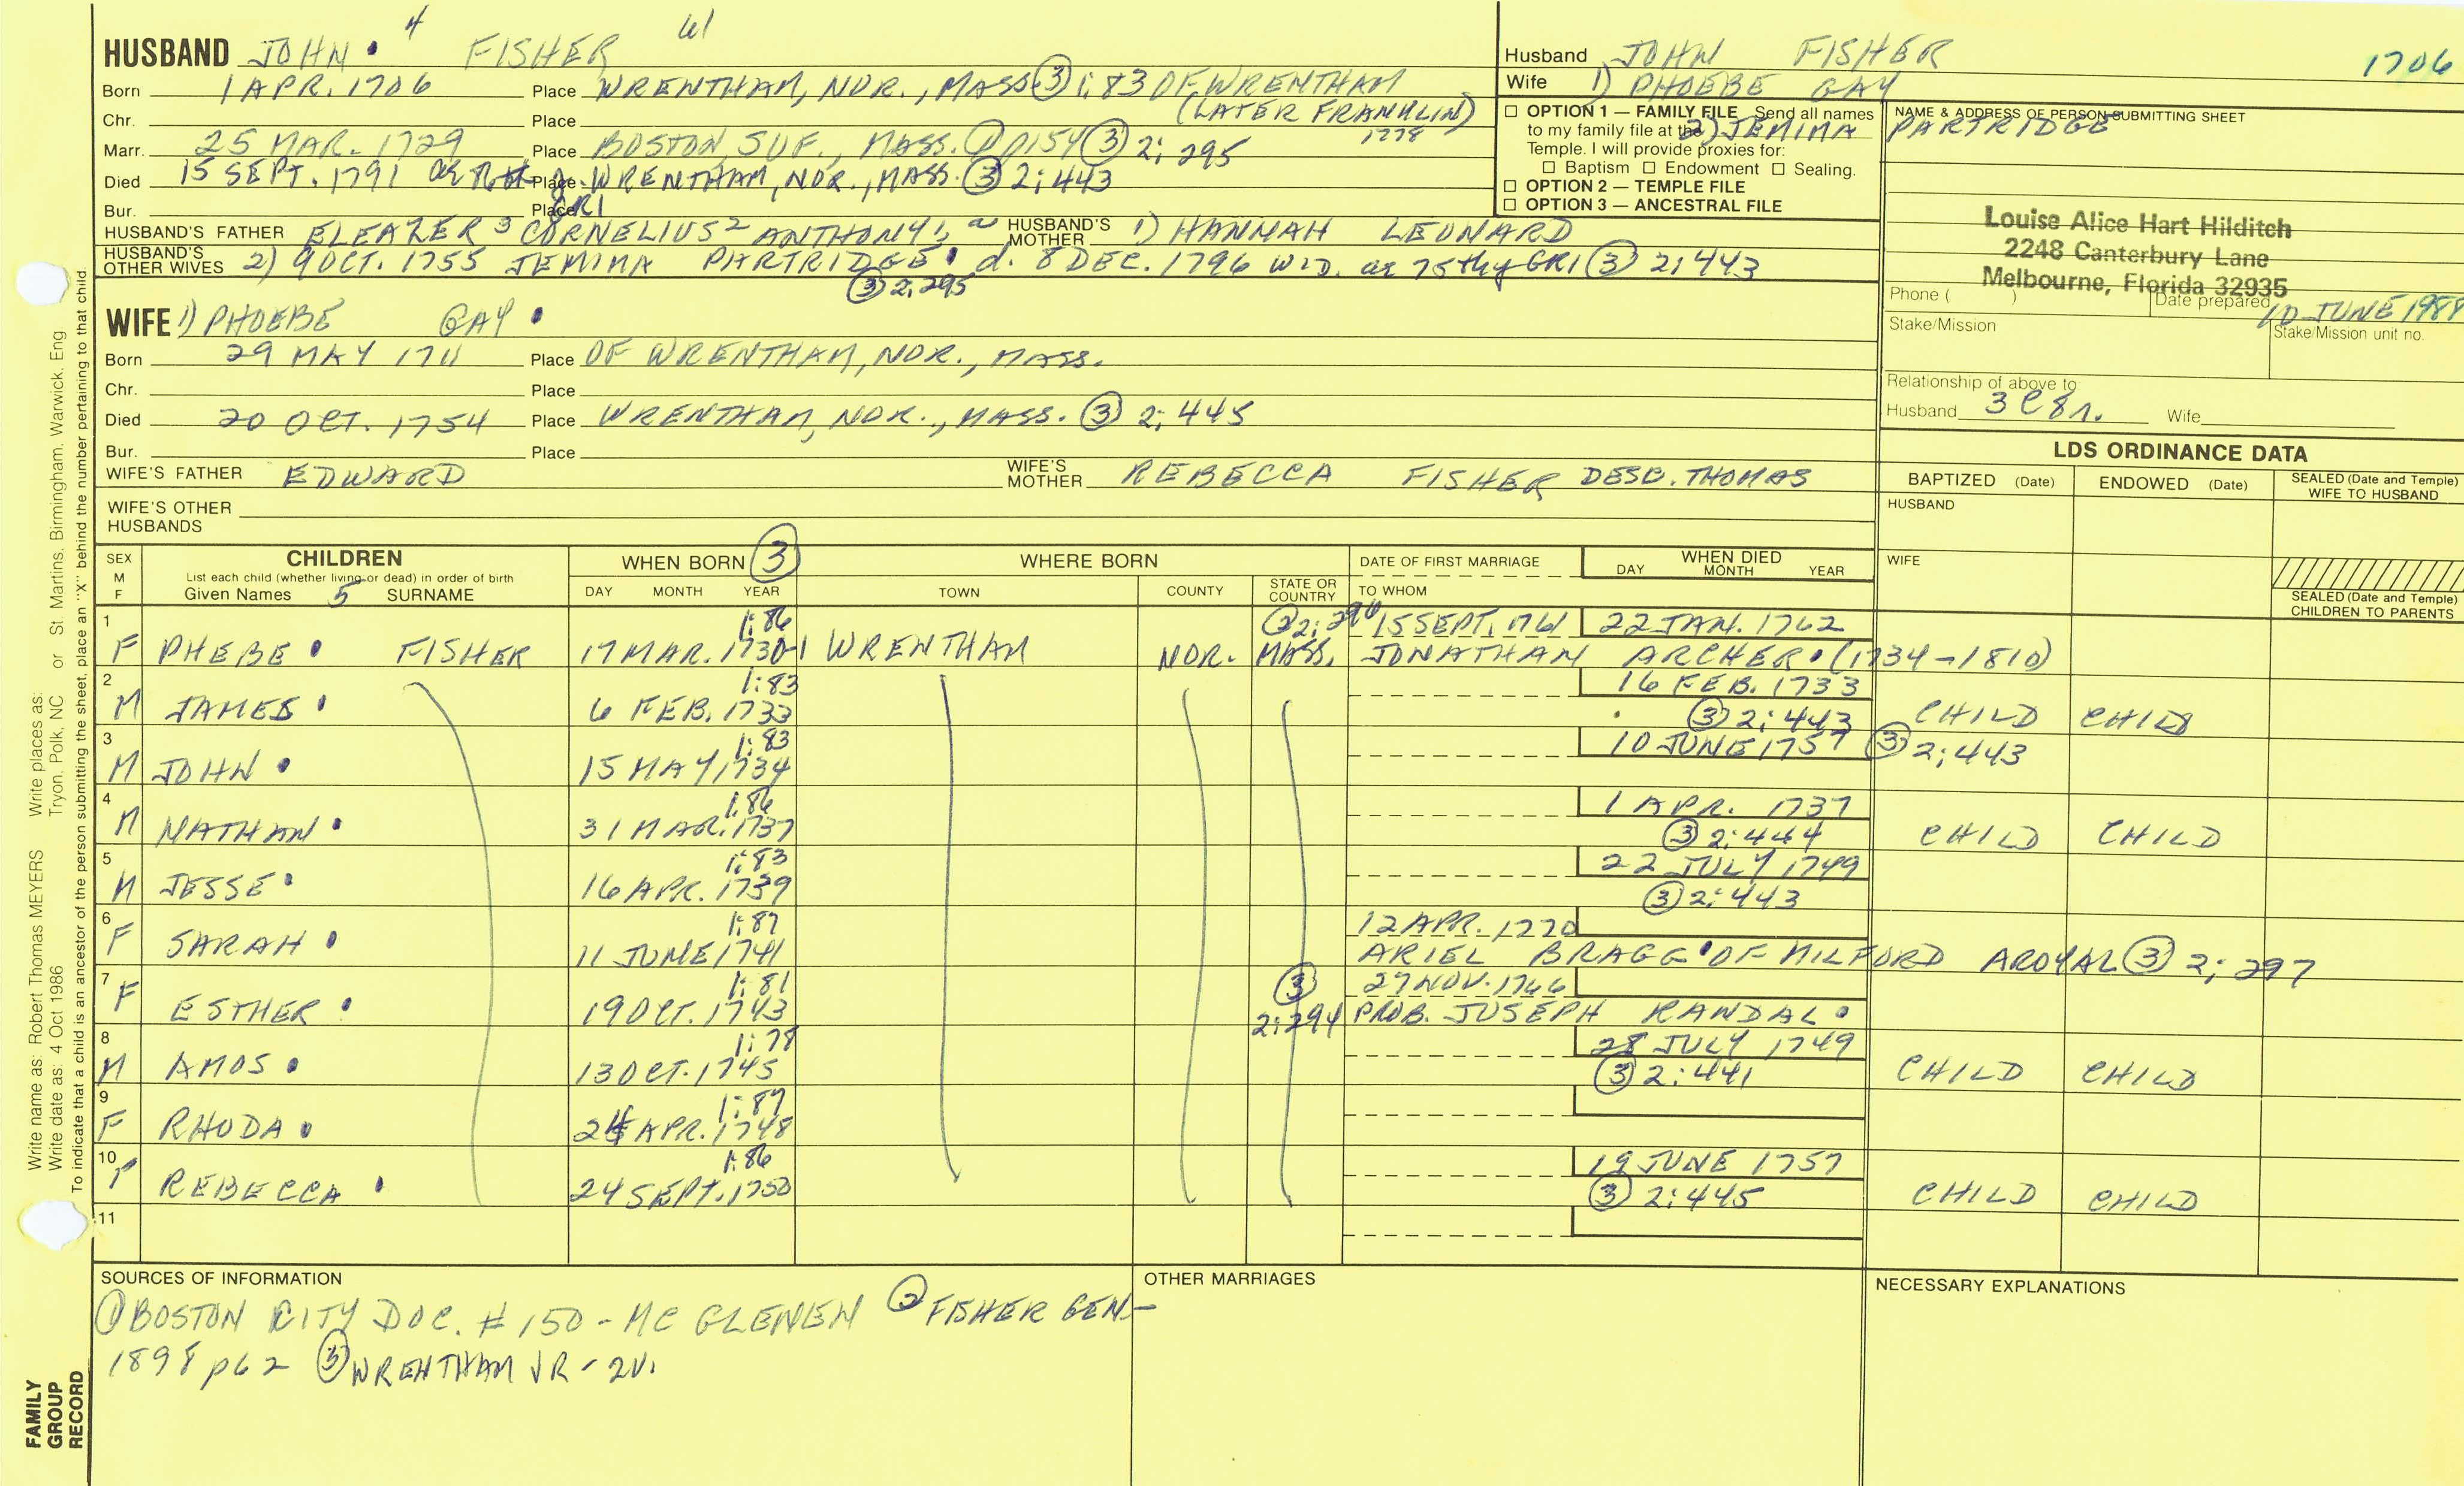 4 61
HUSBAND JOHN FISHER
Born 1 APR. 1706 Place WRENTHAM, NOR., MASS ③ 1:83 OF WRENTHAM
(LATER FRANKLIN)
1778
Chr. Place
Marr. 25 MAR. 1729 Place BOSTON, SUF., MASS. ① p154 ③ 2:295
Died 15 SEPT. 1791 Place WRENTHAM, NOR., MASS. ③ 2:443
Bur. Place GR1
HUSBAND'S FATHER ELEAZER 3 CORNELIUS 2 ANTHONY 1, HUSBAND'S MOTHER 1) HANNAH LEONARD
HUSBAND'S OTHER WIVES 2) 9 OCT. 1755 JEMIMA PARTRIDGE d. 8 DEC. 1796 WID. ae 75thy GR1 ③ 2:443
③ 2:295
WIFE 1) PHOEBE GAY
Born 29 MAY 1711 Place OF WRENTHAM, NOR., MASS.
Chr. Place
Died 20 OCT. 1754 Place WRENTHAM, NOR., MASS. ③ 2:445
Bur. Place
WIFE'S FATHER EDWARD WIFE'S MOTHER REBECCA FISHER DESC. THOMAS
WIFE'S OTHER HUSBANDS
Husband JOHN FISHER 1706
Wife 1) PHOEBE GAY
2) JEMIMA PARTRIDGE
☐ OPTION 1 — FAMILY FILE Send all names
to my family file at the
Temple. I will provide proxies for:
☐ Baptism ☐ Endowment ☐ Sealing.
☐ OPTION 2 — TEMPLE FILE
☐ OPTION 3 — ANCESTRAL FILE
NAME & ADDRESS OF PERSON SUBMITTING SHEET
Louise Alice Hart Hilditch
2248 Canterbury Lane
Melbourne, Florida 32935
Phone ( ) Date prepared 10 JUNE 1988
Stake/Mission Stake/Mission unit no.
Relationship of above to
Husband 3C8r. Wife
LDS ORDINANCE DATA
BAPTIZED (Date) ENDOWED (Date) SEALED (Date and Temple) WIFE TO HUSBAND
HUSBAND
WIFE
SEALED (Date and Temple) CHILDREN TO PARENTS
SEX M F CHILDREN WHEN BORN ③ WHERE BORN DATE OF FIRST MARRIAGE WHEN DIED
List each child (whether living or dead) in order of birth DAY MONTH YEAR
Given Names 5 SURNAME DAY MONTH YEAR TOWN COUNTY STATE OR COUNTRY TO WHOM
1 1:86 ③ 2:296 15 SEPT. 1761 22 JAN. 1762
F PHEBE FISHER 17 MAR. 1730-1 WRENTHAM NOR. MASS. JONATHAN ARCHER (1734-1810)
2 1:83 16 FEB. 1733
M JAMES 6 FEB. 1733 ③ 2:443 CHILD CHILD
3 1:83 10 JUNE 1757 ③ 2:443
M JOHN 15 MAY 1734
4 1:86 1 APR. 1737
M NATHAN 31 MAR. 1737 ③ 2:444 CHILD CHILD
5 1:83 22 JULY 1749
M JESSE 16 APR. 1739 ③ 2:443
6 1:87 12 APR. 1770
F SARAH 11 JUNE 1741 ARIEL BRAGG OF MILFORD AROYAL ③ 2:297
7 1:81 ③ 27 NOV. 1766
F ESTHER 19 OCT. 1743 2:294 PROB. JOSEPH RANDAL
8 1:78 28 JULY 1749
M AMOS 13 OCT. 1745 ③ 2:441 CHILD CHILD
9 1:87
F RHODA 24 APR. 1748
10 1:86 19 JUNE 1757
F REBECCA 24 SEPT. 1750 ③ 2:445 CHILD CHILD
11
SOURCES OF INFORMATION
① BOSTON CITY DOC. #150 - MC GLENEN ② FISHER GEN.-
1898 p62 ③ WRENTHAM VR - 2V.
OTHER MARRIAGES
NECESSARY EXPLANATIONS
Write name as: Robert Thomas MEYERS Write places as: Tryon, Polk, NC or St Martins, Birmingham, Warwick, Eng
Write date as: 4 Oct 1986
To indicate that a child is an ancestor of the person submitting the sheet, place an "X" behind the number pertaining to that child.
FAMILY
GROUP
RECORD